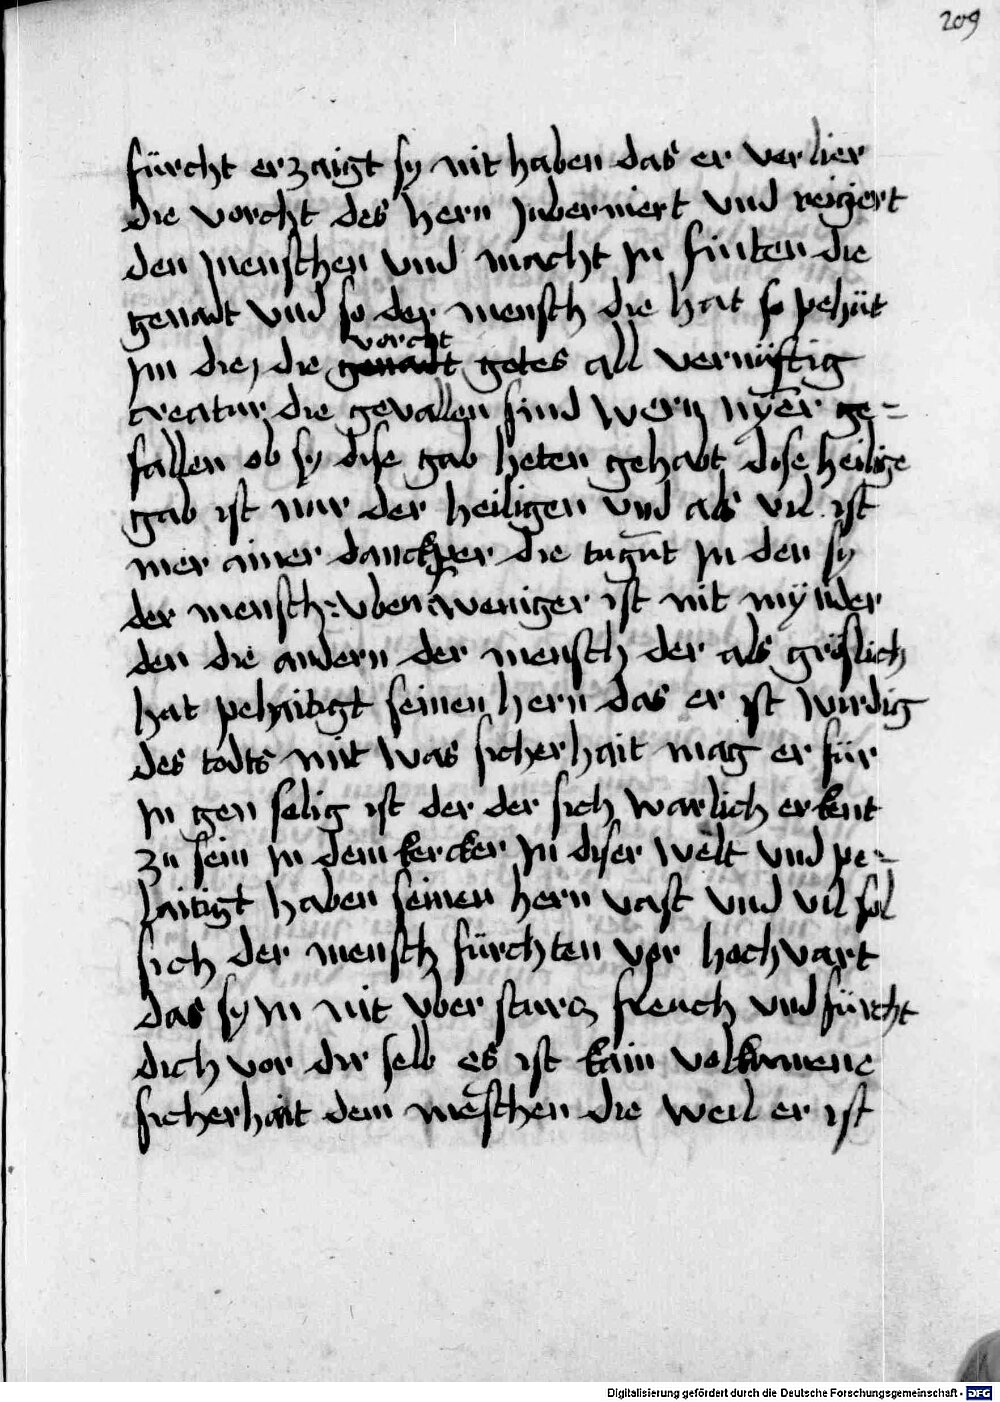 209
fürcht erzaigt sy nit haben das er verlier
die vorcht des hern Juberniert vnd reigiert
den menschen vnd macht Jn finten die
genadt vnd so der mensch die hat so pehüt
Jm die, die vorcht genadt gotes all vernüftig
creatur die gevallen sind wern nyer ge=
fallen ob sy dise gab heten gehabt dise heilige
gab ist nur der heiligen vnd als vil ist
mer ainer danckper die tugnt Jn den sy
der mensch vben weniger ist nit mynder
den die andern der mensch der als gröslich
hat pelaitigt seinen hern das er ist wirdig
des todts mit was sicherhait mag er für
Jn gen selig ist der der sich warlich erkent
zu sein Jn dem kercker Jn diser welt vnd pe=
laitigt haben seinen hern vast vnd vil sol
sich der mensch fürchten vor hochvart
das sy Jn nit vber sturcz fleuch vnd fürcht
dich vor dir selb es ist kain volkumene
sicherhait dem meschen die weil er ist
Digitalisierung gefördert durch die Deutsche Forschungsgemeinschaft - DFG